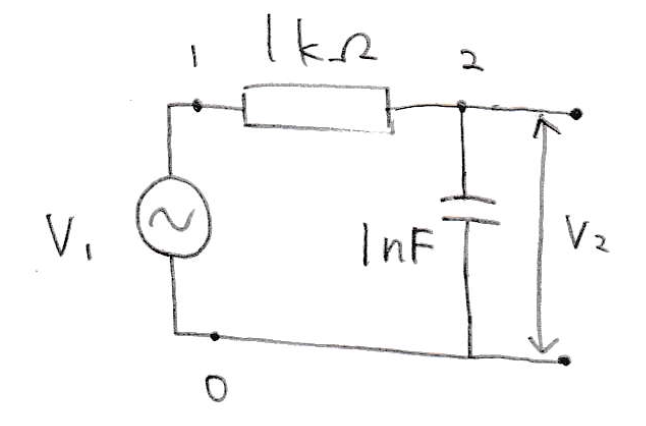 1
1kΩ
2
V₁
1nF
V₂
0